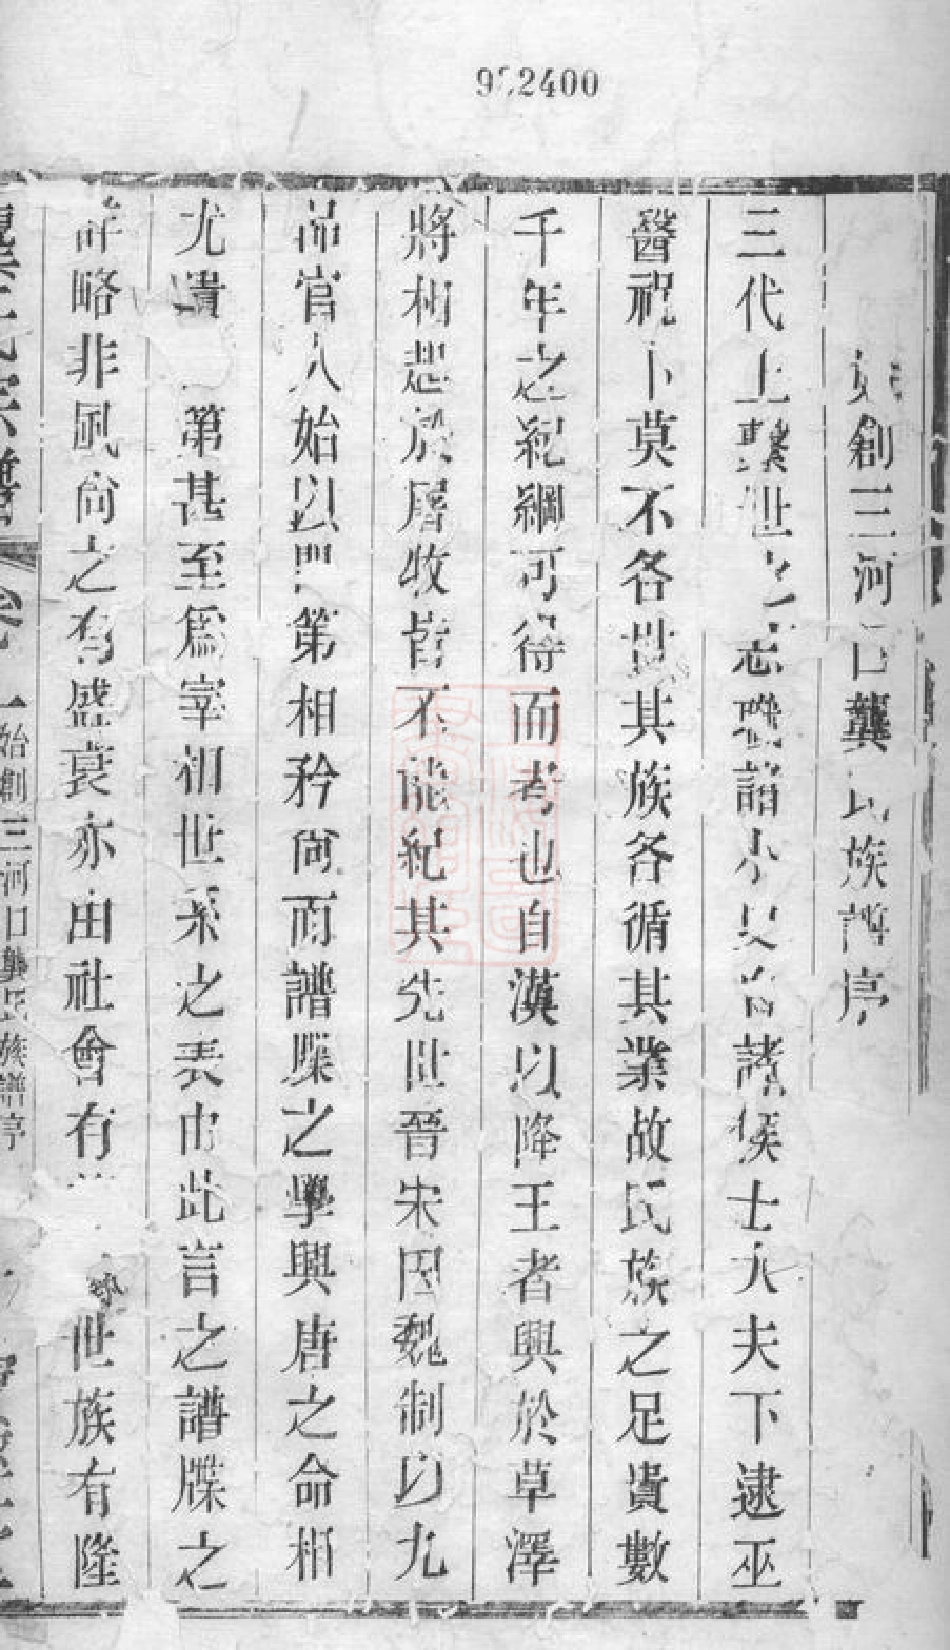 922400
始創三河口龔氏族譜序
三代上繫世之志職諸小史自諸侯士大夫下逮巫
醫祝卜莫不各世其族各循其業故氏族之足貴數
千年之紀綱可得而考也自漢以降王者興於草澤
將相起於屠牧皆不能紀其先世晉宋因魏制以九
品官人始以門第相矜尚而譜牒之學興唐之命相
尤貴 第甚至爲宰相世系之表由此言之譜牒之
詳略非風尚之有盛衰亦由社會有 世族有隆
龔氏宗譜 卷一 始創三河口龔氏族譜序